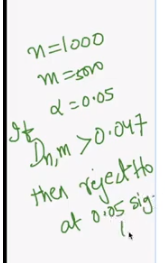 n=1000
m=5000
α=0.05
If
Dn,m >0.047
then reject Ho
at 0.05 sig.
l.